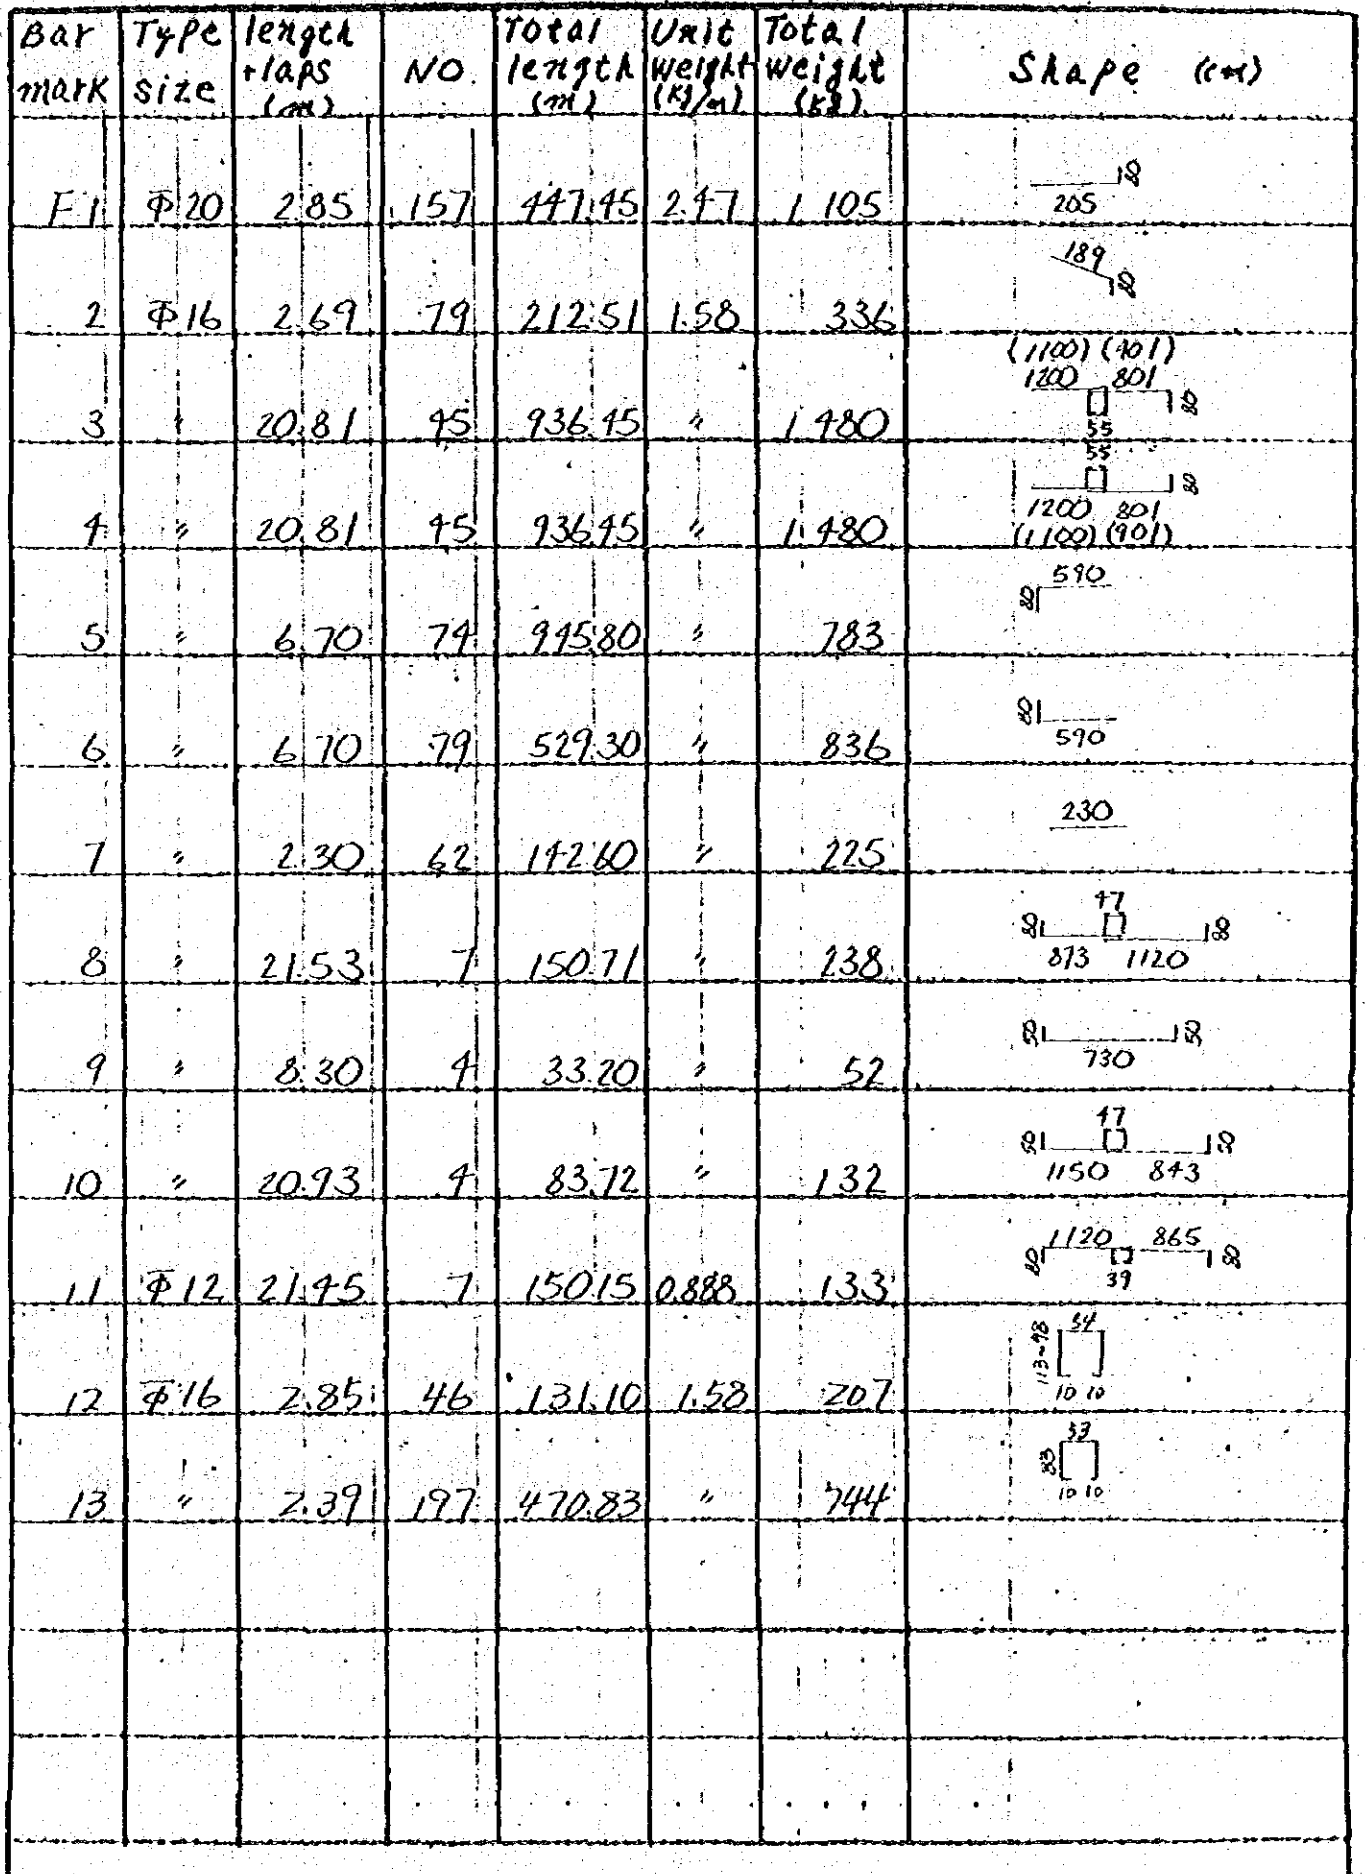 Bar mark | Type size | length +laps (m) | NO. | Total length (m) | Unit weight (kg/m) | Total weight (kg) | Shape (cm)
F1 | Φ20 | 2.85 | 157 | 447.45 | 2.47 | 1 105 | 205 80
2 | Φ16 | 2.69 | 79 | 212.51 | 1.58 | 336 | 189 80
3 | 〃 | 20.81 | 45 | 936.45 | 〃 | 1 480 | (1100) (901) 1200 801 80 55
4 | 〃 | 20.81 | 45 | 936.45 | 〃 | 1 480 | 55 80 1200 801 (1100) (901)
5 | 〃 | 6.70 | 74 | 495.80 | 〃 | 783 | 590 80
6 | 〃 | 6.70 | 79 | 529.30 | 〃 | 836 | 80 590
7 | 〃 | 2.30 | 62 | 142.60 | 〃 | 225 | 230
8 | 〃 | 21.53 | 7 | 150.71 | 〃 | 238 | 47 80 80 873 1120
9 | 〃 | 8.30 | 4 | 33.20 | 〃 | 52 | 50 50 730
10 | 〃 | 20.93 | 4 | 83.72 | 〃 | 132 | 47 50 50 1150 843
11 | Φ12 | 21.45 | 7 | 150.15 | 0.888 | 133 | 1120 865 80 80 39
12 | Φ16 | 2.85 | 46 | 131.10 | 1.58 | 207 | 54 113~98 10 10
13 | 〃 | 2.39 | 197 | 470.83 | 〃 | 744 | 53 83 10 10